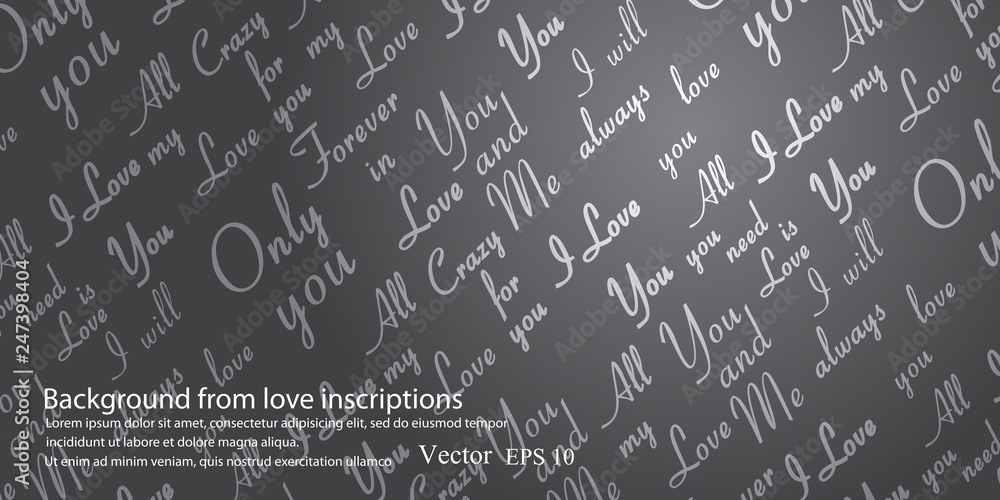 Only
you
All
Crazy
for
my
Love
You
I will
you
All
for
you
I Love my
Love you
Forever
in
You
and
Me
always
love
you
All
I Love my
Love
You
Only
All
You
Only
you
Love
Crazy
for
you
I Love
You
you
need
Love
is
I will
need
Love
is
I will
All
my
Love
All
You
and
Me
always
love
you
always
love
You
Crazy
You
and
Me
my
Love
I Love
you
need
Background from love inscriptions
Lorem ipsum dolor sit amet, consectetur adipisicing elit, sed do eiusmod tempor
incididunt ut labore et dolore magna aliqua.
Ut enim ad minim veniam, quis nostrud exercitation ullamco
Vector EPS 10
Adobe Stock | #247398404